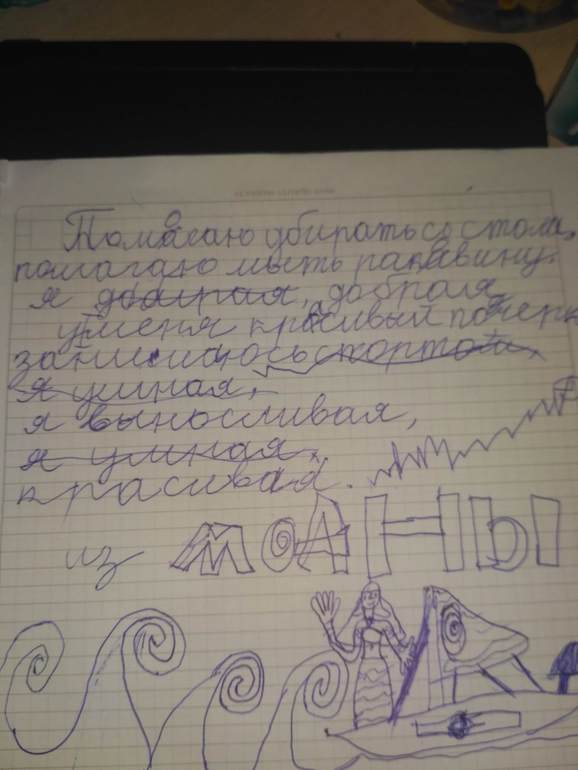 Помагаю убирать со стола,
помагаю мыть раковину.
я добрая, добрая
у меня красивый почерк
занимаюсь спортом,
я умная,
я выносливая,
я умная,
красивая.
из МОАНЫ